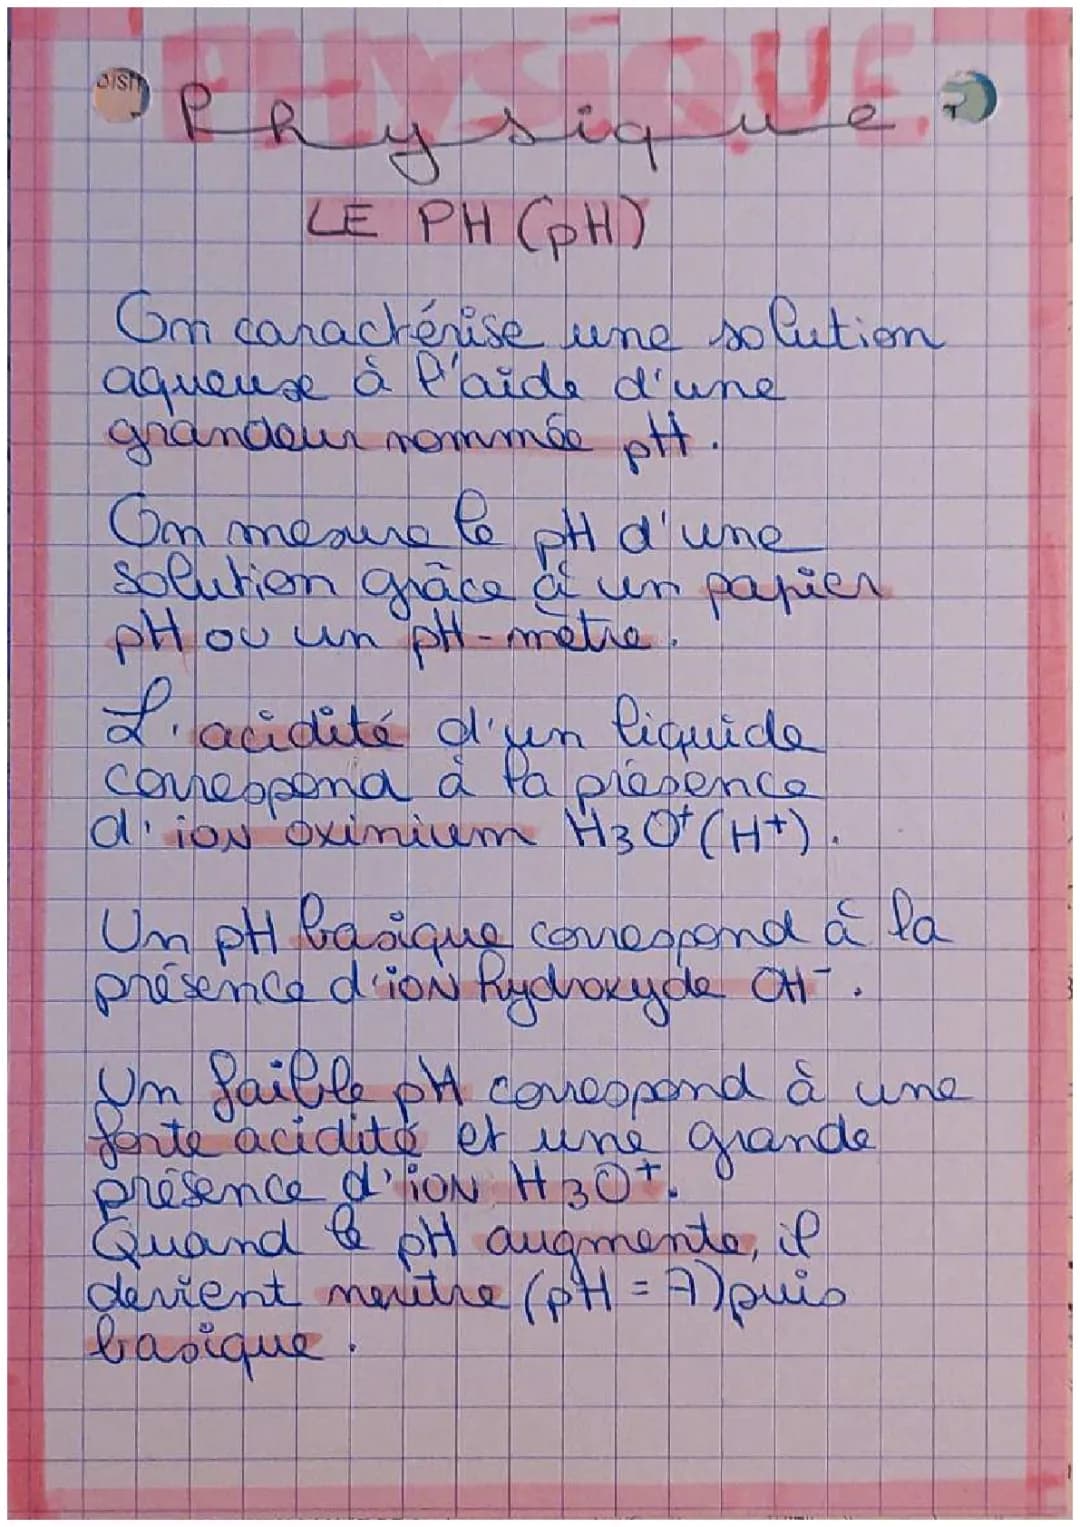 PHYSIQUE
Physique
LE PH (pH)
On caractérise une solution
aqueuse à l'aide d'une
grandeur nommée pH.
On mesure le pH d'une
solution grâce à un papier
pH ou un pH-mètre.
L'acidité d'un liquide
correspond à la présence
d'ion oxinium H3O+ (H+).
Un pH basique correspond à la
présence d'ion hydroxyde OH-.
Un faible pH correspond à une
forte acidité et une grande
présence d'ion H3O+.
Quand le pH augmente, il
devient neutre (pH = 7) puis
basique.